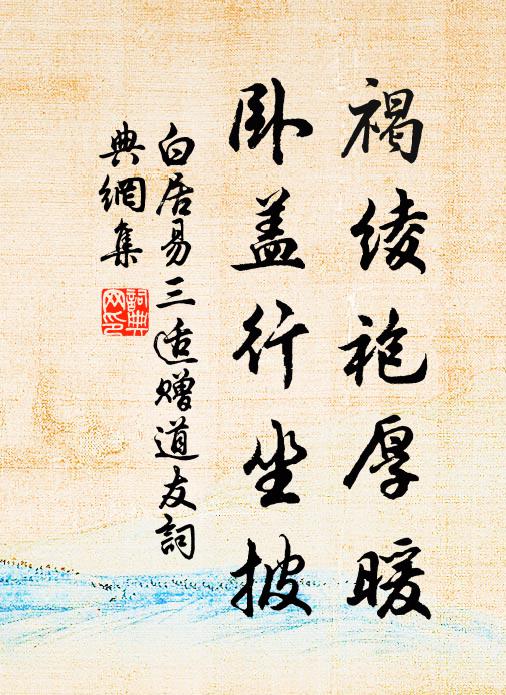 褐绫袍厚暖
卧盖行坐披
白居易三适赠道友词
典網集
詞典
网印